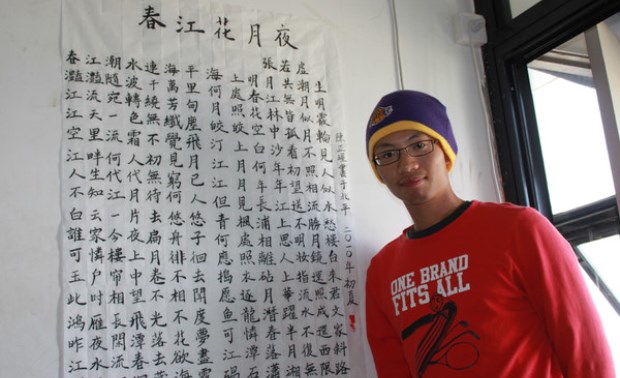 春江花月夜
張若虛
春江潮水連海平 海上明月共潮生
灩灩隨波千萬里 何處春江無月明
江流宛轉繞芳甸 月照花林皆似霰
江天一色無纖塵 皎皎空中孤月輪
空里流霜不覺飛 汀上白沙看不見
江畔何人初見月 江月何年初照人
人生代代無窮已 江月年年望相似
不知江月待何人 但見長江送流水
白云一片去悠悠 青楓浦上不勝愁
誰家今夜扁舟子 何處相思明月樓
可憐樓上月徘徊 應照離人妝鏡台
玉戶帘中卷不去 搗衣砧上還來
此时相望不相聞 願逐月華流照君
鴻雁長飛光不度 魚龍潛躍水成文
昨夜閑潭夢落花 可憐春半不還家
江水流春去欲盡 江潭落月復西斜
碣石瀟湘無限路
二〇一〇年初夏
ONE BRAND
FITS ALL